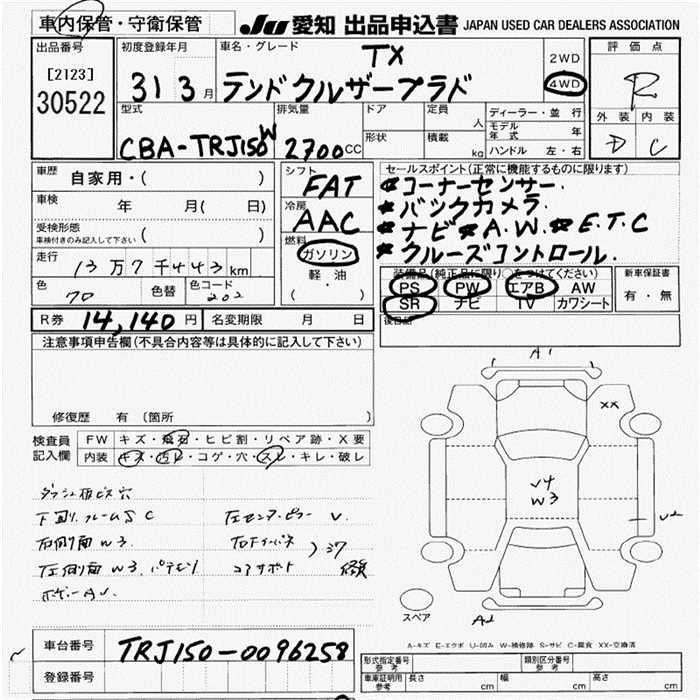 車内保管・守衛保管
JU 愛知 出品申込書 JAPAN USED CAR DEALERS ASSOCIATION
出品番号 初度登録年月 車名・グレード 評価点
[2123] TX 2WD
30522 31 3月 テンドクルザープラド 4WD R
型式 排気量 ドア 定員 人 ディーラー・並行 外装 内装
モデル年式 年
CBA-TRJ150W 2700CC 形状 積載 kg ハンドル 左・右 D C
車歴 自家用・( ) シフト FAT セールスポイント(正常に機能するものに限ります)
☆コーナーセンサー.
車検 年 月( 日) 冷房 AAC ☆バックカメラ.
受検形態 車検付きのみ記入して下さい ( ) 燃料 ☆ナビ☆A.W.☆E.T.C
走行 13万7千443km ガソリン ☆クルーズコントロール.
軽油 装備品(純正品に限り○をつけてください) 新車保証書
色 70 色替 色コード 202 ( ・ ) PS PW エアB AW 有・無
SR ナビ TV カワシート
R券 14,140円 名変期限 月 日 後日品
注意事項申告欄(不具合内容等は具体的に記入して下さい)
A1
XX
修復歴 有 〔箇所
検査員 FW キズ・飛石・ヒビ割・リペア跡・X要
記入欄 内装 キズ・汚レ・コゲ・穴・スレ・キレ・破レ
ダッシュ板ビス穴 V4
W3
下回り.フレームS C 左センターピラー V. U2
右側面 W3.
左側面 W3.
コアサポート
ボデーAU.
スペア A2
A-キズ E-エクボ U-凹み W-補修跡 S-サビ C-腐食 XX-交換済
車台番号 TRJ150-0096258
登録番号 形式指定番号 参考 類別区分番号 参考
車庫証明用 参考 長さ cm 幅 cm 高さ cm